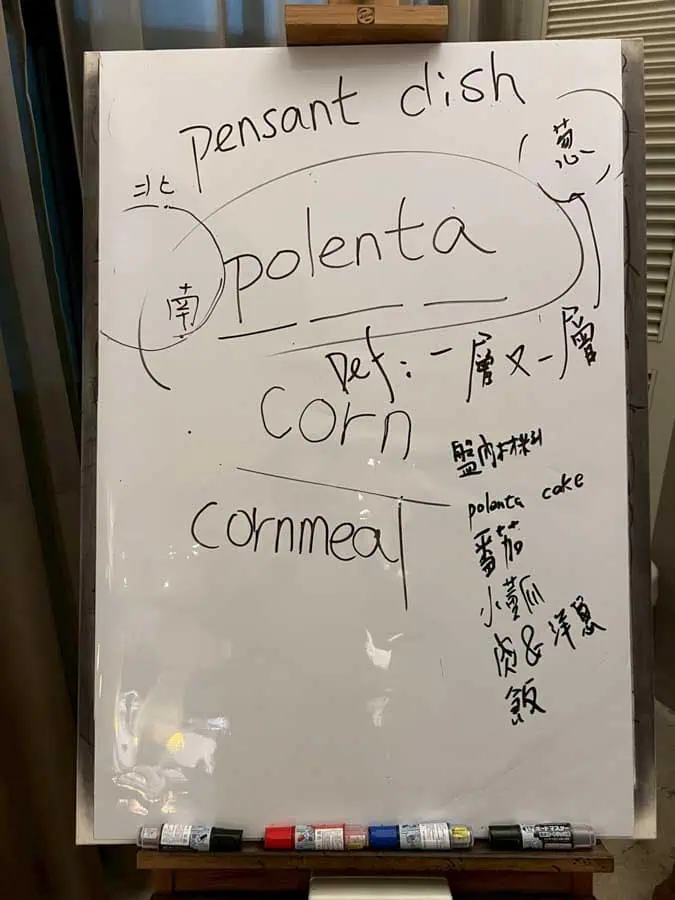 pensant dish
(葱)
北
polenta
南
Def: 一層又一層
corn
盤內材料
cornmeal
polenta cake
番茄
小黃瓜
肉&洋葱
飯